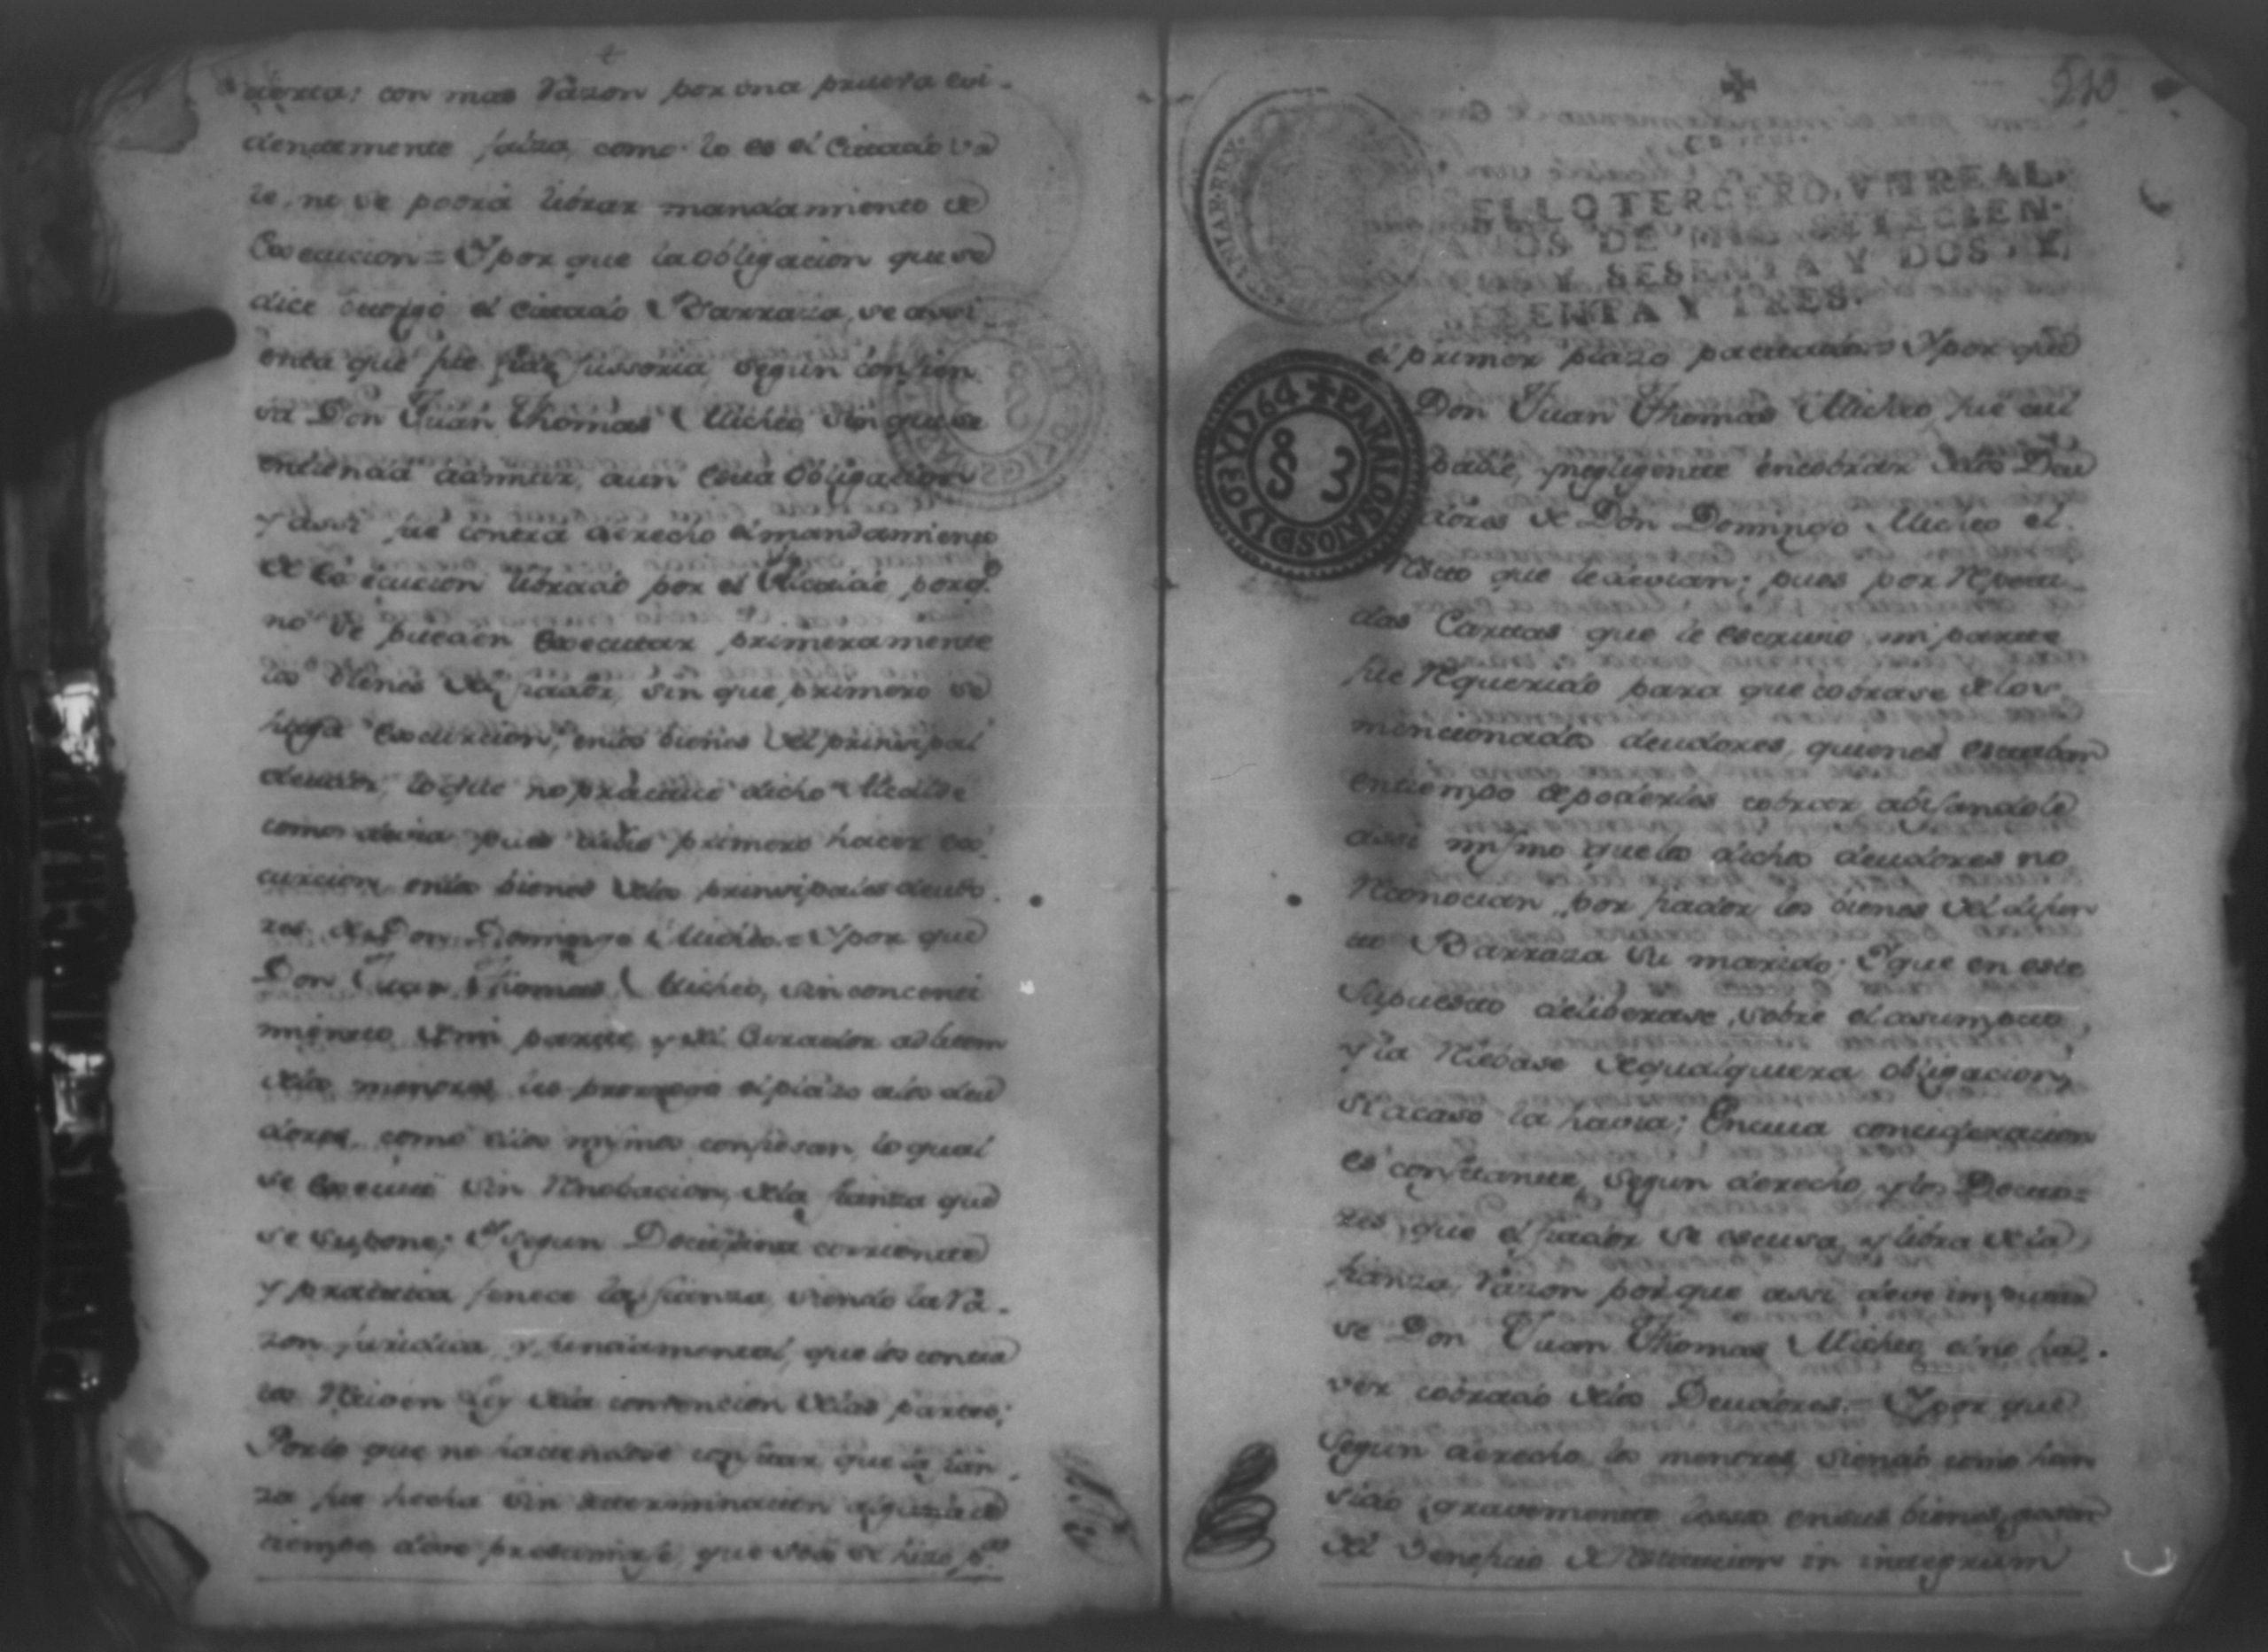 con mas razon por una prueva evi-
dentemente falza, como lo es el citado va
le, no se podrá librar mandamiento de
Execucion = Y por que la obligacion que se
dice otorgó el citado Barraza, se assi
enta que fue fide jussoria, segun confie
sa Don Juan Thomas Micheo, sin que se
entienda admitir, aun esta obligacion
y assi fue contra derecho el mandamiento
de Execucion librado por el Alcalde porq.e
no se pueden Executar primeramente
los bienes del fiador, sin que primero se
haga Excurcion, en los bienes del principal
deudor, lo que no practicó dicho Alcalde
como devia pues devio primero hacer ex-
curcion en los bienes de los principales deudo-
res de Don Domingo Micheo. = Y por que
Don Juan Thomas Micheo, sin concenti
miento de mi parte, y del Curador ad litem
de los menores les prorrogó el plazo a los deu
dores, como ellos mismos confiesan, lo qual
se Executó sin Renobacion, de la fianza que
se supone; Y segun Doctrina corriente
y practica fenece la fianza, siendo la ra-
zon juridica, y fundamental, que los contra
tos Reciven Ley de la convencion de las partes;
Por lo que no haciendose constar que la fian-
za fue hecha sin determinacion alguna de
tiempo deve presumirse, que solo se hizo p.a
+
513
SELLO TERCERO, VN REAL,
AÑOS DE MIL SETECIEN-
TOS Y SESENTA Y DOS, Y
SESENTA Y TRES.
PARA LOS AÑOS DE 1763 Y 1764
S S 3
el primer plazo pactado. = Y por que
Don Juan Thomas Micheo, fue cul
pable, y negligente en cobrar de los Deu
dores de Don Domingo Micheo el
Ridito que le devian; pues por Repeti
das Cartas que le escrivio mi parte
fue Requerido para que cobrase de los
mencionados deudores, quienes estaban
en tiempo de poderles cobrar abisandole
assi mismo que los dichos deudores no
Reconocian por fiador los bienes del difun
to Barraza su marido; Y que en este
supuesto deliberase, sobre el asumpto,
y la Relebase de qualquiera obligacion,
si acaso la havia; En cuia concideracion
es constante, segun derecho, y los Docto=
res, que el fiador se escusa, y libra de la
fianza, razon por que assi deve imputar
se Don Juan Thomas Micheo, el no ha-
ver cobrado de los Deudores. = Y por que
segun derecho, los menores, siendo como han
sido gravemente lesos en sus bienes, gosan
del Beneficio de Restitucion in integrum